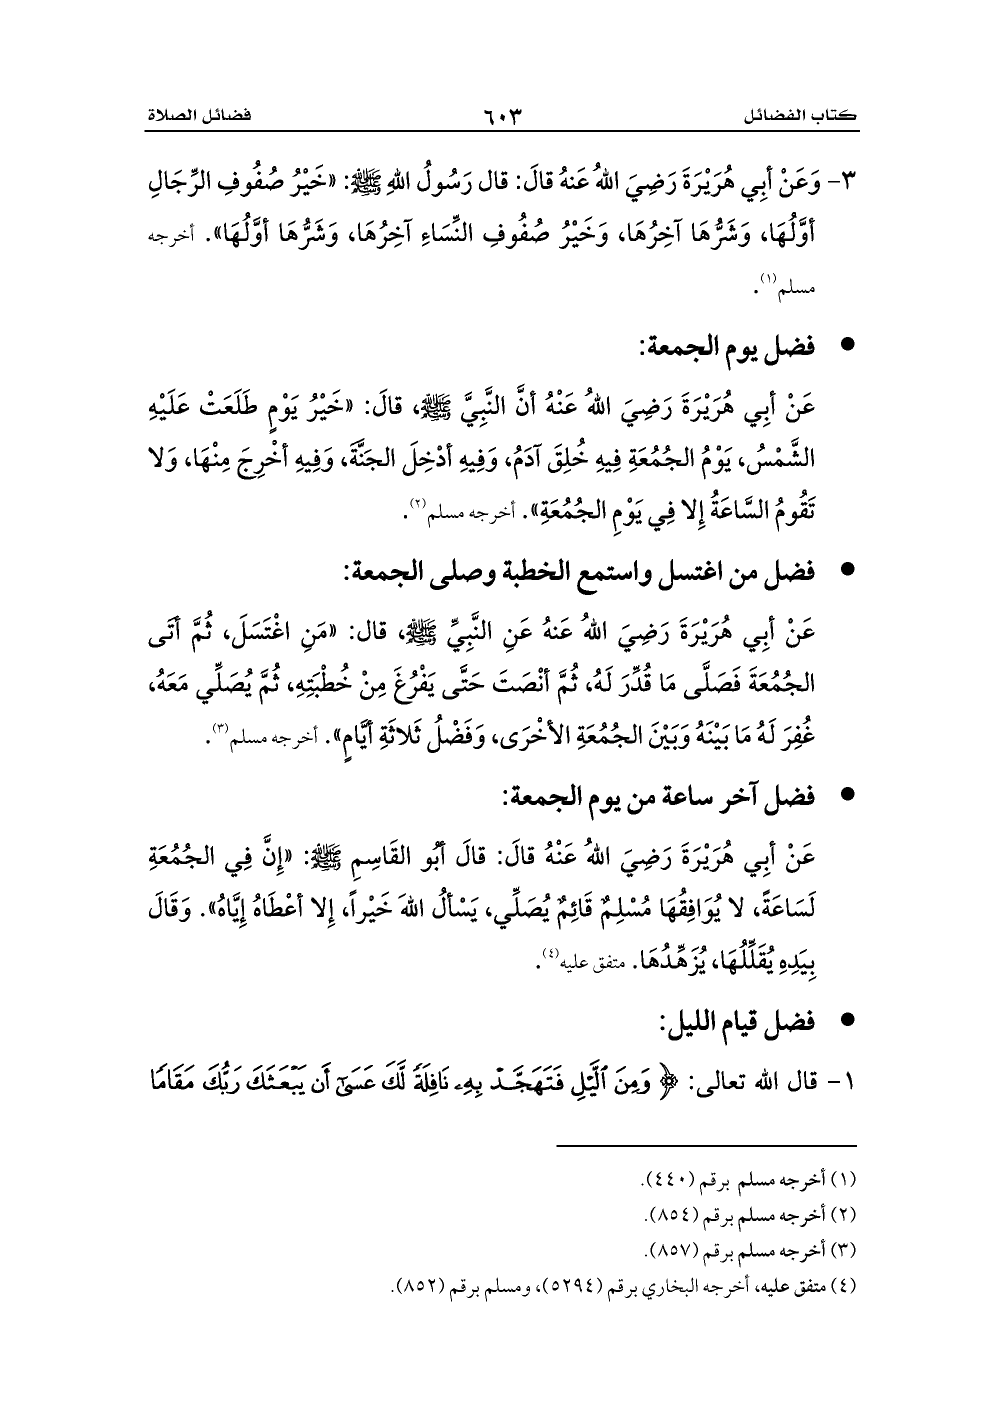 كتاب الفضائل ٦٠٣ فضائل الصلاة
٣- وَعَنْ أبِي هُرَيْرَةَ رَضِيَ اللهُ عَنهُ قالَ: قال رَسُولُ اللهِ ﷺ: «خَيْرُ صُفُوفِ الرِّجَالِ
أوَّلُهَا، وَشَرُّهَا آخِرُهَا، وَخَيْرُ صُفُوفِ النِّسَاءِ آخِرُهَا، وَشَرُّهَا أوَّلُهَا». أخرجه
مسلم(١).
● فضل يوم الجمعة:
عَنْ أبِي هُرَيْرَةَ رَضِيَ اللهُ عَنْهُ أنَّ النَّبِيَّ ﷺ، قالَ: «خَيْرُ يَوْمٍ طَلَعَتْ عَلَيْهِ
الشَّمْسُ، يَوْمُ الجُمُعَةِ فِيهِ خُلِقَ آدَمُ، وَفِيهِ أدْخِلَ الجَنَّةَ، وَفِيهِ أخْرِجَ مِنْهَا، وَلا
تَقُومُ السَّاعَةُ إِلا فِي يَوْمِ الجُمُعَةِ». أخرجه مسلم(٢).
● فضل من اغتسل واستمع الخطبة وصلى الجمعة:
عَنْ أبِي هُرَيْرَةَ رَضِيَ اللهُ عَنهُ عَنِ النَّبِيِّ ﷺ، قال: «مَنِ اغْتَسَلَ، ثُمَّ أتَى
الجُمُعَةَ فَصَلَّى مَا قُدِّرَ لَهُ، ثُمَّ أنْصَتَ حَتَّى يَفْرُغَ مِنْ خُطْبَتِهِ، ثُمَّ يُصَلِّي مَعَهُ،
غُفِرَ لَهُ مَا بَيْنَهُ وَبَيْنَ الجُمُعَةِ الأخْرَى، وَفَضْلُ ثَلاثَةِ أيَّامٍ». أخرجه مسلم(٣).
● فضل آخر ساعة من يوم الجمعة:
عَنْ أبِي هُرَيْرَةَ رَضِيَ اللهُ عَنْهُ قالَ: قالَ أبُو القَاسِمِ ﷺ: «إِنَّ فِي الجُمُعَةِ
لَسَاعَةً، لا يُوَافِقُهَا مُسْلِمٌ قَائِمٌ يُصَلِّي، يَسْألُ اللهَ خَيْراً، إِلا أعْطَاهُ إِيَّاهُ». وَقَالَ
بِيَدِهِ يُقَلِّلُهَا، يُزَهِّدُهَا. متفق عليه(٤).
● فضل قيام الليل:
١- قال الله تعالى: ﴿ وَمِنَ ٱلَّيْلِ فَتَهَجَّدْ بِهِۦ نَافِلَةً لَّكَ عَسَىٰٓ أَن يَبْعَثَكَ رَبُّكَ مَقَامًا
(١) أخرجه مسلم برقم (٤٤٠).
(٢) أخرجه مسلم برقم (٨٥٤).
(٣) أخرجه مسلم برقم (٨٥٧).
(٤) متفق عليه، أخرجه البخاري برقم (٥٢٩٤)، ومسلم برقم (٨٥٢).